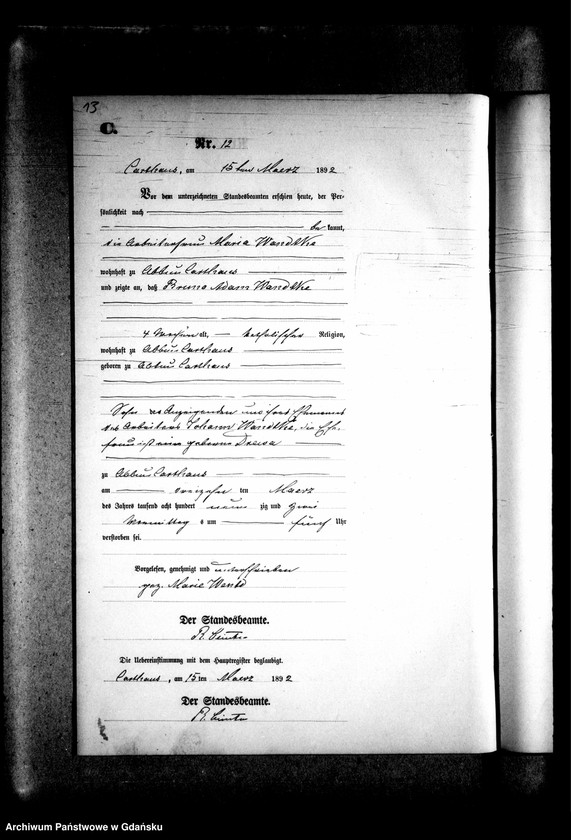 13
C.
Nr. 12
Carthaus, am 15ten Maerz 1892
Vor dem unterzeichneten Standesbeamten erschien heute, der Per-
sönlichkeit nach
be kannt,
die Arbeiterfrau Maria Wandtke
wohnhaft zu Abbau Carthaus
und zeigte an, daß Bruno Adam Wandtke
4 Wochen alt, katholischer Religion,
wohnhaft zu Abbau Carthaus
geboren zu Abbau Carthaus
Sohn der Anzeigenden und ihres Ehemannes
des Arbeiters Johann Wandtke, die Ehe-
frau ist eine geborene
zu Abbau Carthaus
am dreizehn ten Maerz
des Jahres tausend acht hundert neun zig und zwei
Vormittags um fünf Uhr
verstorben sei.
Vorgelesen, genehmigt und unterschrieben
gez. Marie
Der Standesbeamte.
Die Uebereinstimmung mit dem Hauptregister beglaubigt.
Carthaus, am 15ten Maerz 1892
Der Standesbeamte.
Archiwum Państwowe w Gdańsku